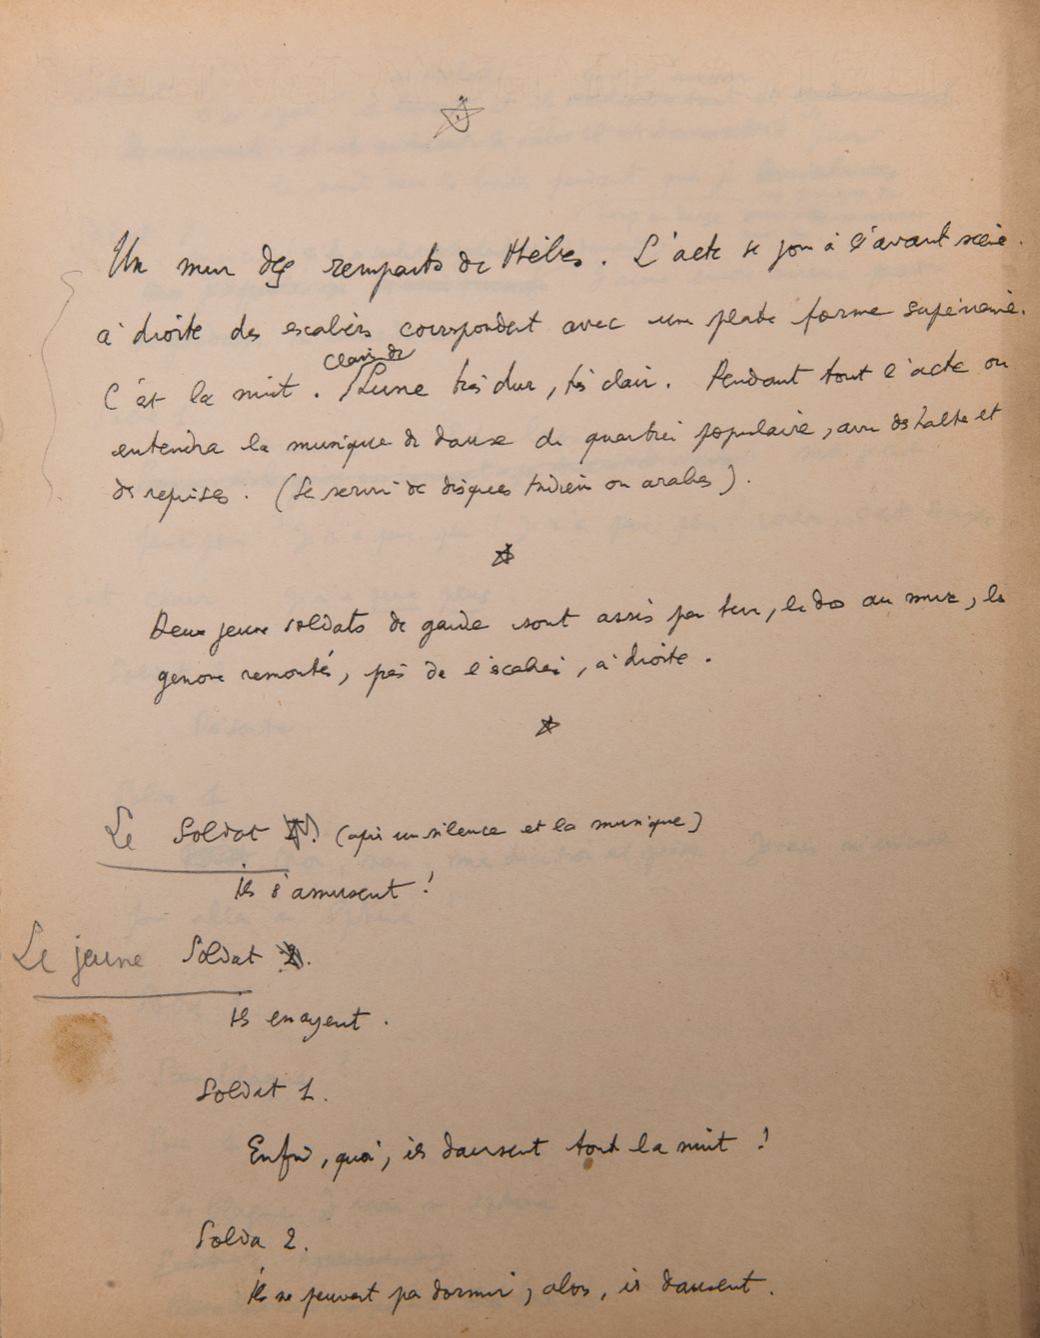 Un mur des remparts de Thèbes. L'acte se jou à l'avant scène.
à droite des escaliers correspondent avec une plate forme supérieure.
C'est la nuit. clair de Lune très dur, très clair. Pendant tout l'acte on
entendra la musique de danse du quartier populaire, avec des halte et
de reprises. (Se servir de disques indien ou arabes).
Deux jeune soldats de garde sont assis par terre, le dos au mur, les
genoux remontés, près de l'escalier, à droite.
Le Soldat (après un silence et la musique)
Ils s'amusent !
Le jeune Soldat 2.
Ils essayent.
Soldat 1.
Enfin, quoi, ils dansent tout la nuit !
Solda 2.
Ils ne peuvent pas dormir, alors, ils dansent.